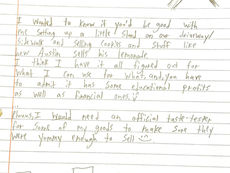 I wanted to know if you'd be good with
me setting up a little stand on our driveway/
sidewalk and selling cookies and stuff like
how Austin sells his lemonade.
I think I have it all figured out for
what I can use for what, and you have
to admit it has some educational profits
as well as financial ones.
Plus, I would need an official taste-tester
for some of my goods to make sure they
were yummy enough to sell